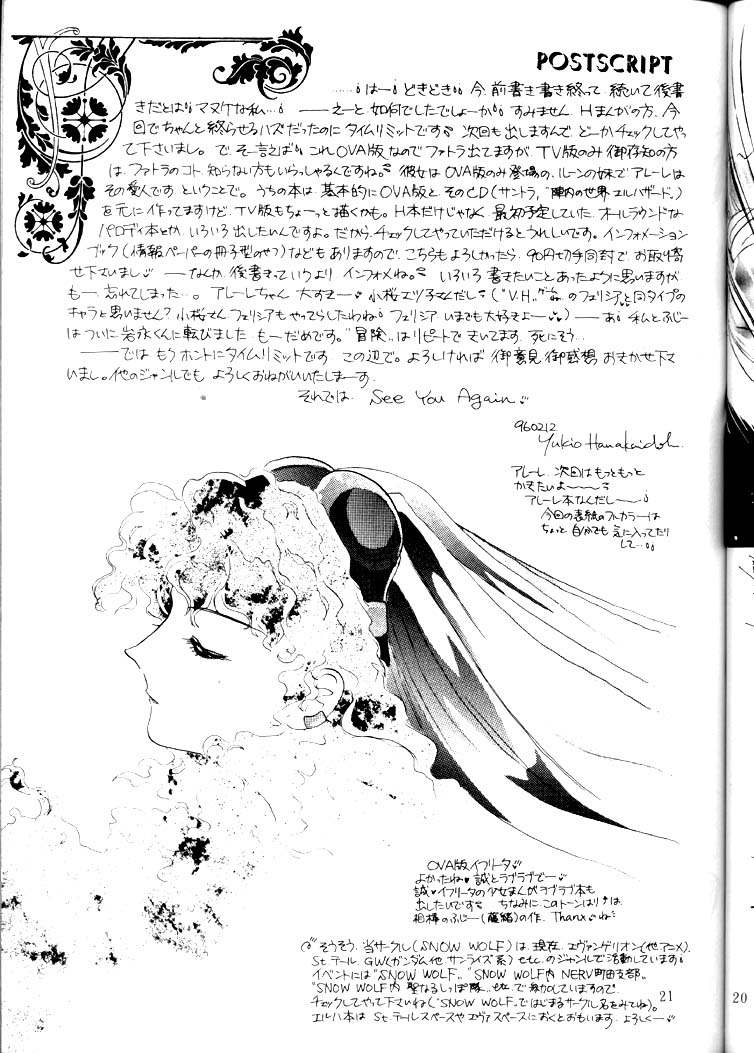 POSTSCRIPT
……はー どきどき 今、前書き書き終って、続いて後書
きだとは マヌケな私… ――えーと 如何でしたでしょーか すみません、Hまんがの方、今
回でちゃんと終らせるハズだったのに タイムリミットです 次回も出しますんで どーか チェックしてやっ
て下さいまし。で、そー言えば これOVA版なのでファトラ出てますが、TV版のみ御存知の方
は、ファトラのコト、知らない方もいらっしゃるんですね。彼女はOVA版のみ登場の、ルーンの妹で アレーレは
その愛人です ということで。うちの本は、基本的にOVA版と、そのCD(サントラ,"陣内の世界エルハザード")
を元に作ってますけど、TV版もちょーっと描くかも。H本だけじゃなく、最初予定していた オールラウンドな
パロディ本とか、いろいろ出したいんですよ。だから、チェックしてやっていただけるとうれしいです。インフォメーション
ブック(情報ペーパーの冊子型のやつ)などもありますので、こちらもよろしかったら、90円切手同封で、お取り寄
せ下さいまし ――なんか、後書きっていうより インフォメね。 いろいろ書きたいことあったように思いますが、
もー、忘れてしまった…。アレーレちゃん 大すきー 小桜エツ子さんだし ("V.H."ゲームのフェリシアと同タイプの
キャラと思いません? 小桜さん フェリシアもやってらしたわね フェリシア いまでも大好きよー) ――あ 私とふじー
はついに岩永くんに転びました もーだめです。"冒険"はリピートで きいてます 死にそう…
――では もうホントにタイムリミットです この辺で。よろしければ 御意見、御感想 おきかせ下さ
いまし。他のジャンルでも よろしくおねがいいたしまーす
それでは、See You Again
960212
Yukio Hanakaidoh
アレーレ、次回はもっともっと
かきたいよ〜〜
アレーレ本なんだし〜
今回の表紙のフルカラーは
ちょっと 自分でも 気に入ってたり
して…
OVA版イフリータ
よかったね♥ 誠とラブラブでー
誠♥イフリータの少女まんがラブラブ本も
出したいですぅ ちなみに、このトーンはりは
相棒のふじー(藤緒)の作、Thanxね
そうそう、当サークル(SNOW WOLF)は、現在、エヴァンゲリオン(他アニメ)、
St.テール、GW(ガンダム他、サンライズ系)etc.のジャンルで活動しています
イベントには"SNOW WOLF"、"SNOW WOLF内 NERV町田支部"、
"SNOW WOLF内 聖なるしっぽ隊"、etc.で参加していますので、
チェックしてやって下さいね("SNOW WOLF"ではじまるサークル名をみてね)。
エルハ本は St.テールスペースやエヴァスペースにおくとおもいます よろしくー
21
20